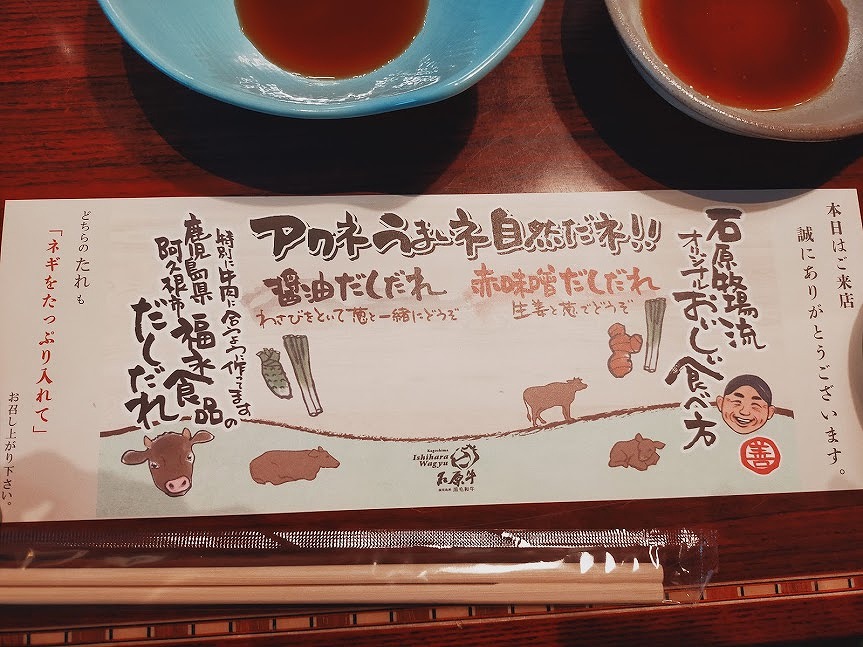 本日はご来店
誠にありがとうございます。
石原牧場流
オリジナルおいしい食べ方
善
アクネうまいネ自然だネ!!
赤味噌だしだれ
生姜と葱でどうぞ
醤油だしだれ
わさびをといて葱と一緒にどうぞ
Kagoshima
Ishihara
Wagyu
石原牛
特別に牛肉に合うように作ってます
鹿児島県
阿久根市
福永食品の
だしだれ
どちらのたれも
「ネギをたっぷり入れて」
お召し上がり下さい。